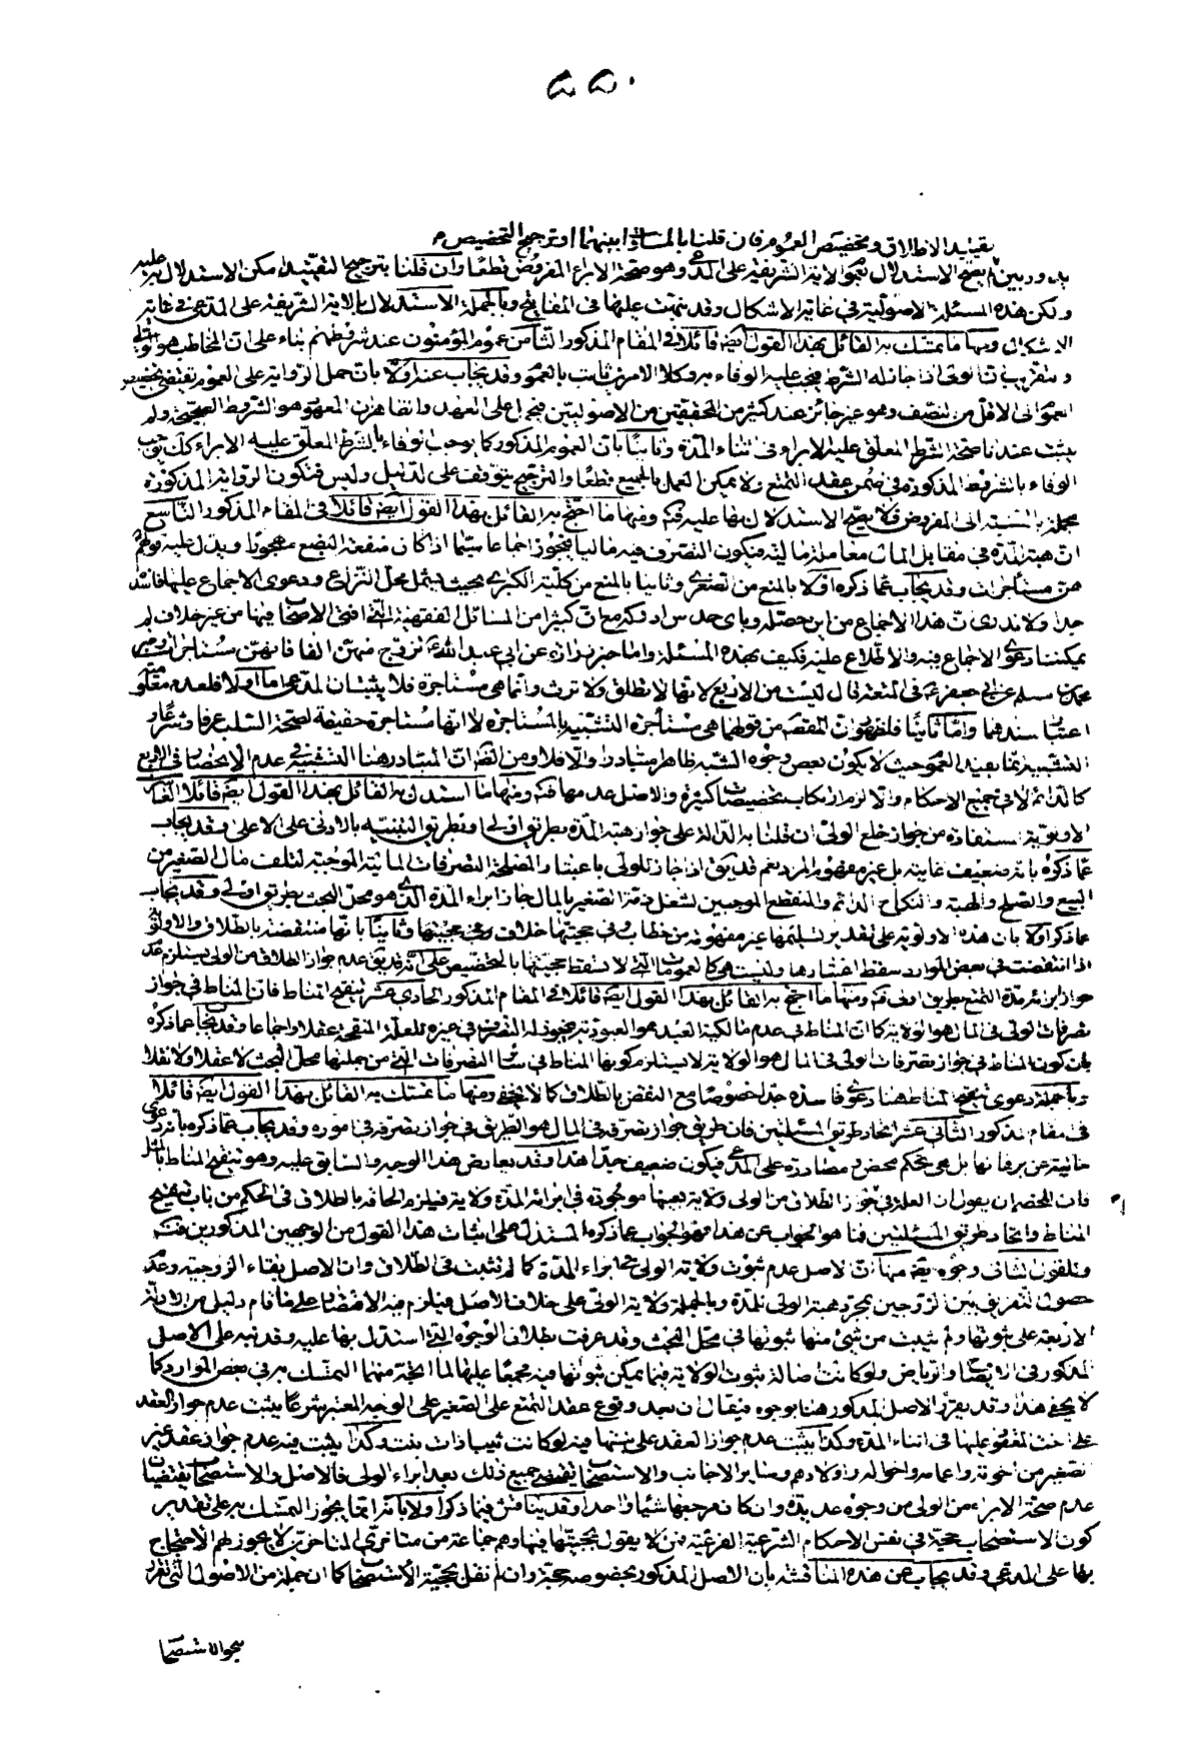 ٥٥٠
بتقييد الاطلاق وتخصيص العموم فان قلنا بالمساواة بينهما او ترجيح التخصيص
لم يصح الاستدلال بعموم الاية الشريفة على المدعى وهو صحة الابراء المفروض قطعا وان قلنا بترجيح التقييد امكن الاستدلال به عليه
ولكن هذه المسئلة الاصولية في غاية الاشكال وقد نبهت عليها في المفاتيح وبالجملة الاستدلال بالاية الشريفة على المدعى في غاية
الاشكال ومنها ما تمسك به القائل بهذا القول ايضا قائلا في المقام المذكور الثامن عموم المؤمنون عند شروطهم بناء على ان المخاطب هو
اذا جاز له الشرط فيجب عليه الوفاء به وكلا الامرين ثابت بالعموم وقد يجاب عنه اولا بان حمل الرواية على العموم يقتضي تخصيص
العموم الى الاقل من النصف وهو غير جائز عند كثير من المحققين من الاصوليين فيحمل على العهد والظاهر ان المعهود هو الشروط الصحيحة ولم
يثبت عندنا صحة الشرط المعلق عليه الابراء في اثناء المدة وثانيا بان العموم المذكور كما يوجب الوفاء بالشرط المعلق عليه الابراء كك يوجب
الوفاء بالشروط المذكورة في ضمن عقد التمتع ولا يمكن العمل بالجميع قطعا والترجيح يتوقف على الدليل وليس فتكون الرواية المذكورة
مجملة بالنسبة الى المفروض فلا يصح الاستدلال بها عليه فتم ومنها ما احتج به القائل بهذا القول ايضا قائلا في المقام المذكور التاسع
ان هبة المدة في مقابل المال معاملة مالية فيكون التصرف فيه ماليا فيجوز اجماعا سيما اذا كان منفعة البضع معجوزا ويدل عليه قولهم
هن مستاجرات وقد يجاب عما ذكره اولا بالمنع من الصغرى وثانيا بالمنع من كلية الكبرى بحيث يشمل محل النزاع ودعوى الاجماع عليها فاسدة
جدا ولا ندري ان هذا الاجماع من اين حصله وباي حدس ادركه مع ان كثيرا من المسائل الفقهية التي افتى الاصحاب فيها من غير خلاف لم
يمكننا دعوى الاجماع فيه والاطلاع عليه فكيف بهذه المسئلة واما خبر زرارة عن ابي عبد الله ع تزوج منهن الفا فانهن مستاجرات وخبر
محمد بن مسلم عن ابي جعفر ع في المتعة قال ليست من الاربع لانها لا تطلق ولا ترث وانما هي مستاجرة فلا يثبتان المدعى اما اولا فلعدم
اعتبار سندهما واما ثانيا فلظهور ان المقصود من قولهما هي مستاجرة التشبيه بالمستاجرة لا انها مستاجرة حقيقة لصحة السلب عرفا وشرعا و
التشبيه انما يفيد العموم حيث لا يكون بعض وجوه الشبه ظاهرا متبادرا والا فلا ومن الظاهر ان المتبادر هنا التشبيه في عدم الانحصار في الاربع
كالدائم لا في جميع الاحكام والا لزم ارتكاب تخصيصات كثيرة والاصل عدمها فتم ومنها ما استدل به القائل بهذا القول ايضا قائلا
الاولوية المستفادة من جواز خلع الولي ان قلنا به الدالة على جواز هبة المدة بطريق اولى او بطريق التنبيه بالادنى على الاعلى وقد يجاب
عما ذكره بانه ضعيف غايته بل غير مفهوم المراد نعم قد يق اذا جاز للولي باعتبار المصلحة التصرفات المالية الموجبة لتلف مال الصغير من
البيع والصلح والهبة والنكاح الدائم والمنقطع الموجبين لشغل ذمة الصغير بالمال جاز ابراء المدة الذي هو محل البحث بطريق اولى وقد يجاب
عما ذكر اولا بان هذه الاولوية على تقدير تسليمها غير مفهومة من خطاب وفي حجيتها خلاف وفي حجيتها وثانيا بانها منتقضة بالطلاق والاولوية
اذا انتقضت في بعض الموارد سقط اعتبارها وليست هي كالعمومات التي لا تسقط حجيتها بالتخصيص على انه قد يق عدم جواز الطلاق من الولي يستلزم عدم
جواز ابراء مدة التمتع بطريق اولى فتم ومنها ما احتج به القائل بهذا القول ايضا قائلا في المقام المذكور الحادي عشر تنقيح المناط فان المناط في جواز
تصرفات الولي في المال هو الولاية كما ان المناط في عدم مالكية العبد هو العبودية فيجوز له التصرف في غيره للعلة المنقحة عقلا واجماعا وقد يجاب عما ذكره
بان كون المناط في جواز تصرفات الولي في المال هو الولاية لا يستلزم كونها المناط في سائر التصرفات التي من جملتها محل البحث لا عقلا ولا نقلا
وبالجملة دعوى تنقيح المناط هنا دعوى فاسدة جدا خصوصا مع النقض بالطلاق كما لا يخفى ومنها ما تمسك به القائل بهذا القول ايضا قائلا
في المقام المذكور الثاني عشر اتحاد طريق المسئلتين فان طريق جواز تصرفه في المال هو الطريق في جواز تصرفه في اموره وقد يجاب عما ذكره بانه دعوى
خالية عن برهانها بل هي تحكم محض ومصادرة على المدعى فيكون ضعيف جدا هذا وقد يعارض هذا الوجه والسابق عليه وهو تنقيح المناط بالمثل
فان للخصم ان يقول ان العلة في جواز الطلاق من الولي ولاية بعينها موجودة في ابراء المدة ولاية فيلزم الحاقه بالطلاق في الحكم من باب تنقيح
المناط واتحاد طريق المسئلتين فما هو الجواب عن هذا فهو الجواب عما ذكره المستدل على اثبات هذا القول من الوجهين المذكورين فتم
وللقول الثاني وجوه ايضا منها ان الاصل عدم ثبوت ولاية الولي في ابراء المدة كما لم تثبت في الطلاق وان الاصل بقاء الزوجية وعدم
حصول التفريق بين الزوجين بمجرد هبة الولي للمدة وبالجملة ولاية الولي على خلاف الاصل فيلزم فيه الاقتصار على ما قام دليل من الادلة
الاربعة على ثبوتها ولم يثبت من شئ منها ثبوتها في محل البحث وقد عرفت بطلاف الوجوه التي استدل بها عليه وقد نبه على الاصل
المذكور في الايضاح والرياض ولو كانت اصالة ثبوت الولاية فيما يمكن ثبوتها فيه مجمعا عليها لما اتجه منهما التمسك به في بعض الموارد كما
لا يخفى هذا وقد يقرر الاصل المذكور هنا بوجوه فيقال ان بعد وقوع عقد التمتع على الصغير على الوجه المعتبر شرعا يثبت عدم جواز العقد
على اخت المعقود عليها في اثناء المدة وكذا يثبت عدم جواز العقد على بنتها فيه لو كانت ثيبا ذات بنت وكذا يثبت فيه عدم جواز عقد غير
الصغير من اخوته واعمامه واخواله واولادهم وساير الاجانب والاستصحاب يقتضي جميع ذلك بعد ابراء الولي فالاصل والاستصحاب يقتضيان
عدم صحة الابراء من الولي من وجوه عديدة وان كان مرجعها شيئا واحدا وقد يناقش فيما ذكر اولا بانه انما يجوز التمسك به على تقدير
كون الاستصحاب حجة في نفس الاحكام الشرعية الفرعية فمن لا يقول بحجيتها فيها وهم جماعة من متاخري المتاخرين لا يجوز لهم الاحتجاج
بها على المدعى وقد يجاب عن هذه المناقشة بان الاصل المذكور بخصوصه حجة وان لم نقل بحجية الاستصحاب كما ان جملة من الاصول التي